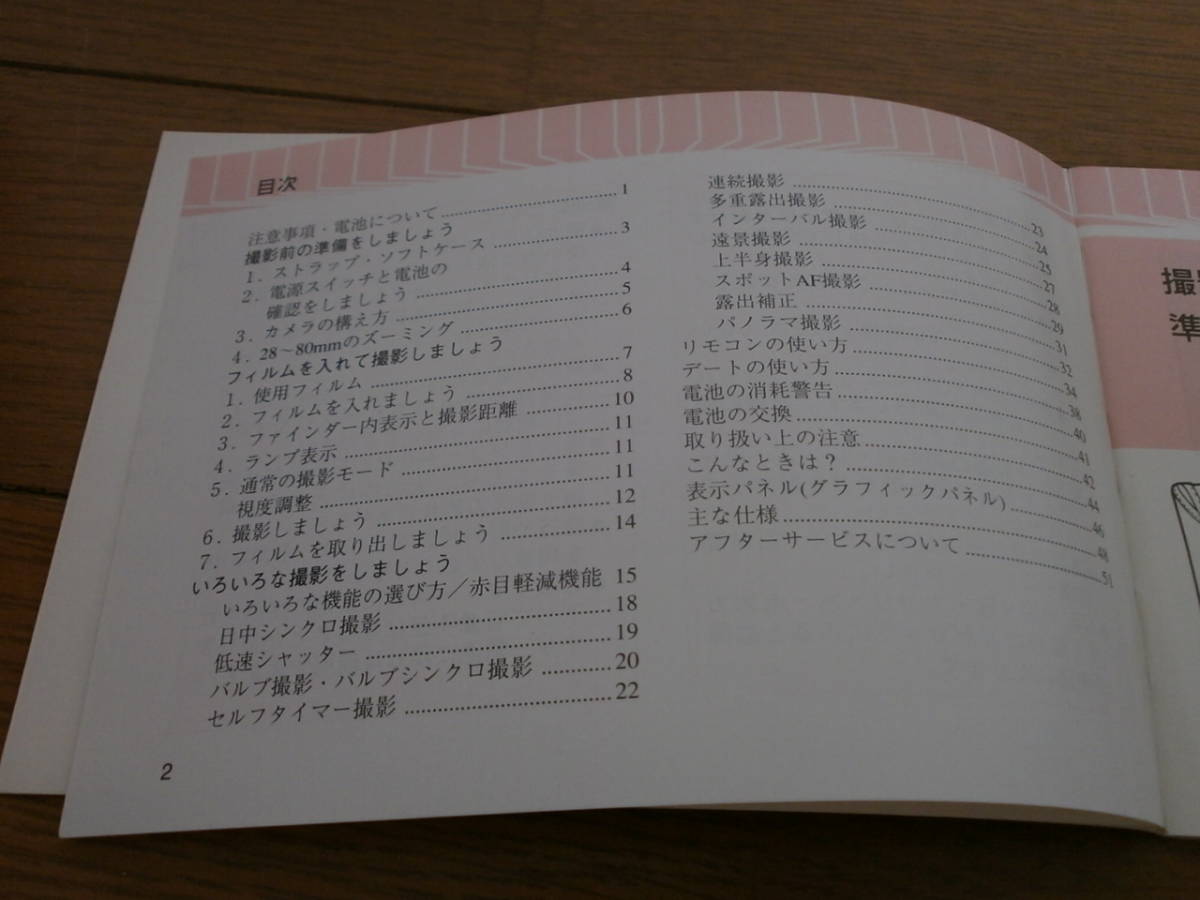 目次
注意事項・電池について 1
撮影前の準備をしましょう
1. ストラップ・ソフトケース 3
2. 電源スイッチと電池の
確認をしましょう 4
3. カメラの構え方 5
4. 28～80mmのズーミング 6
フィルムを入れて撮影しましょう
1. 使用フィルム 7
2. フィルムを入れましょう 8
3. ファインダー内表示と撮影距離 10
4. ランプ表示 11
5. 通常の撮影モード 11
視度調整 11
6. 撮影しましょう 12
7. フィルムを取り出しましょう 14
いろいろな撮影をしましょう
いろいろな機能の選び方/赤目軽減機能 15
日中シンクロ撮影 18
低速シャッター 19
バルブ撮影・バルブシンクロ撮影 20
セルフタイマー撮影 22
2
連続撮影 23
多重露出撮影 24
インターバル撮影 25
遠景撮影 27
上半身撮影 28
スポットAF撮影 29
露出補正 31
パノラマ撮影 32
リモコンの使い方 34
デートの使い方 38
電池の消耗警告 40
電池の交換 41
取り扱い上の注意 42
こんなときは? 44
表示パネル(グラフィックパネル) 46
主な仕様 48
アフターサービスについて 51
準